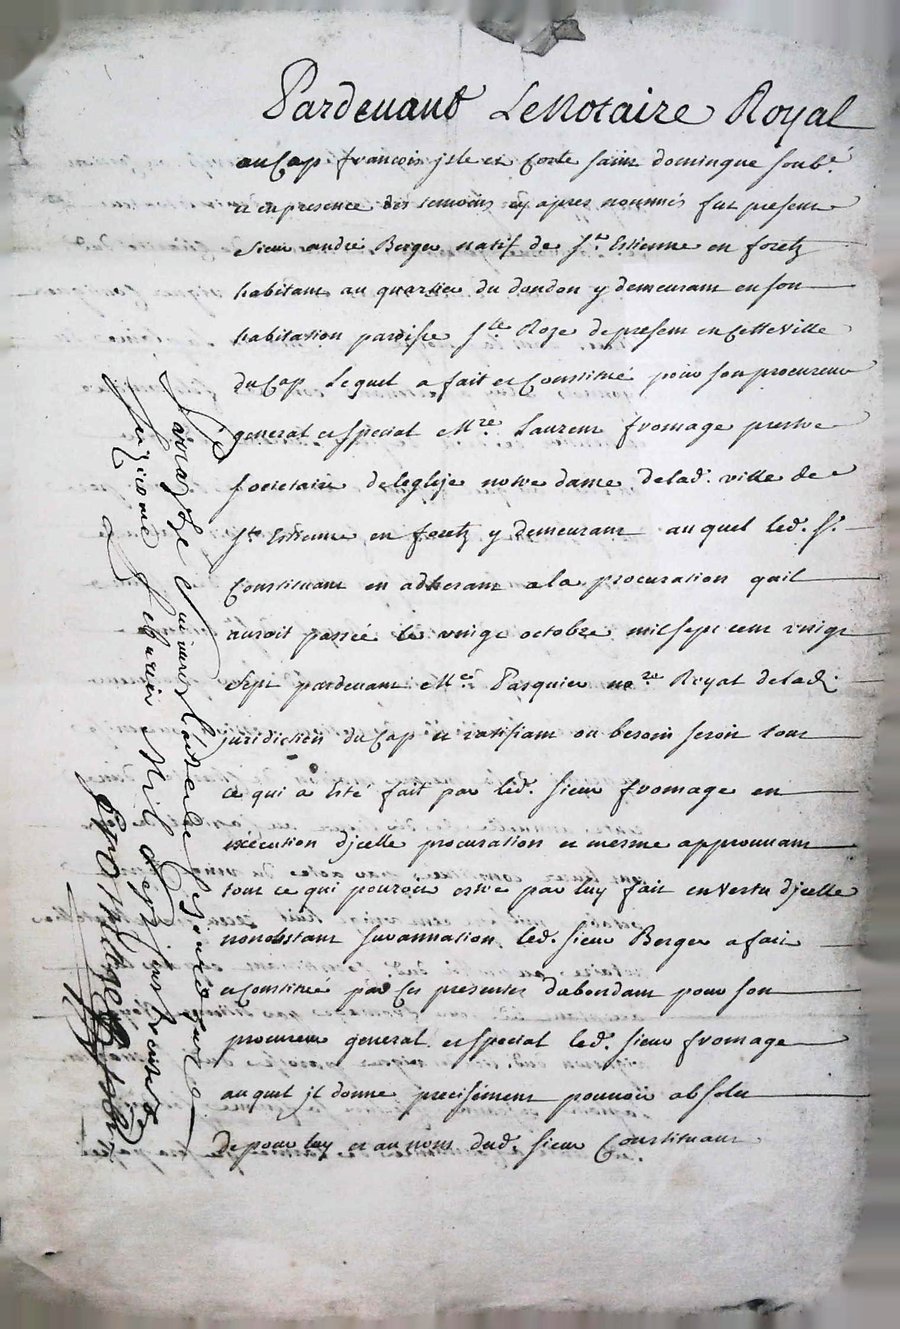 Pardevant Le Notaire Royal
au Cap francois jsle et Coste saint domingue soubz.é
et en presence des temoins cy apres nommés fut present
sieur andré Berger natif de st. Estienne en foretz
habitant au quartier du dondon y demeurant en son
habitation paroisse ste. Roze de present en Cette ville
du Cap Lequel a fait et Constitué pour son procureur
general et special Mre. Laurent fromage prestre
societaire de leglize notre dame de lad. ville de
st. Estienne en foretz y demeurant auquel led. sr.
Constituant en adherant a la procuration quil
auroit passée le vinge octobre mil sept cent vingt
sept pardevant Me. Pasquier nore. Royal de lad.
juridiction du Cap et ratifiant ou besoin seroit tout
ce qui a esté fait par led. sieur fromage en
exécution djcelle procuration et mesme approuvant
tout ce qui pouroit estre par luy fait en vertu djcelle
nonobstant surannation, led. sieur Berger a fait
et Constitué par Ces presentes dabondant pour son
procureur general et special led. sieur fromage
auquel jl donne precisément pouvoir absolu
De pour luy et au nom dud. sieur Constituant
fevrier Mil Sept Cent trente